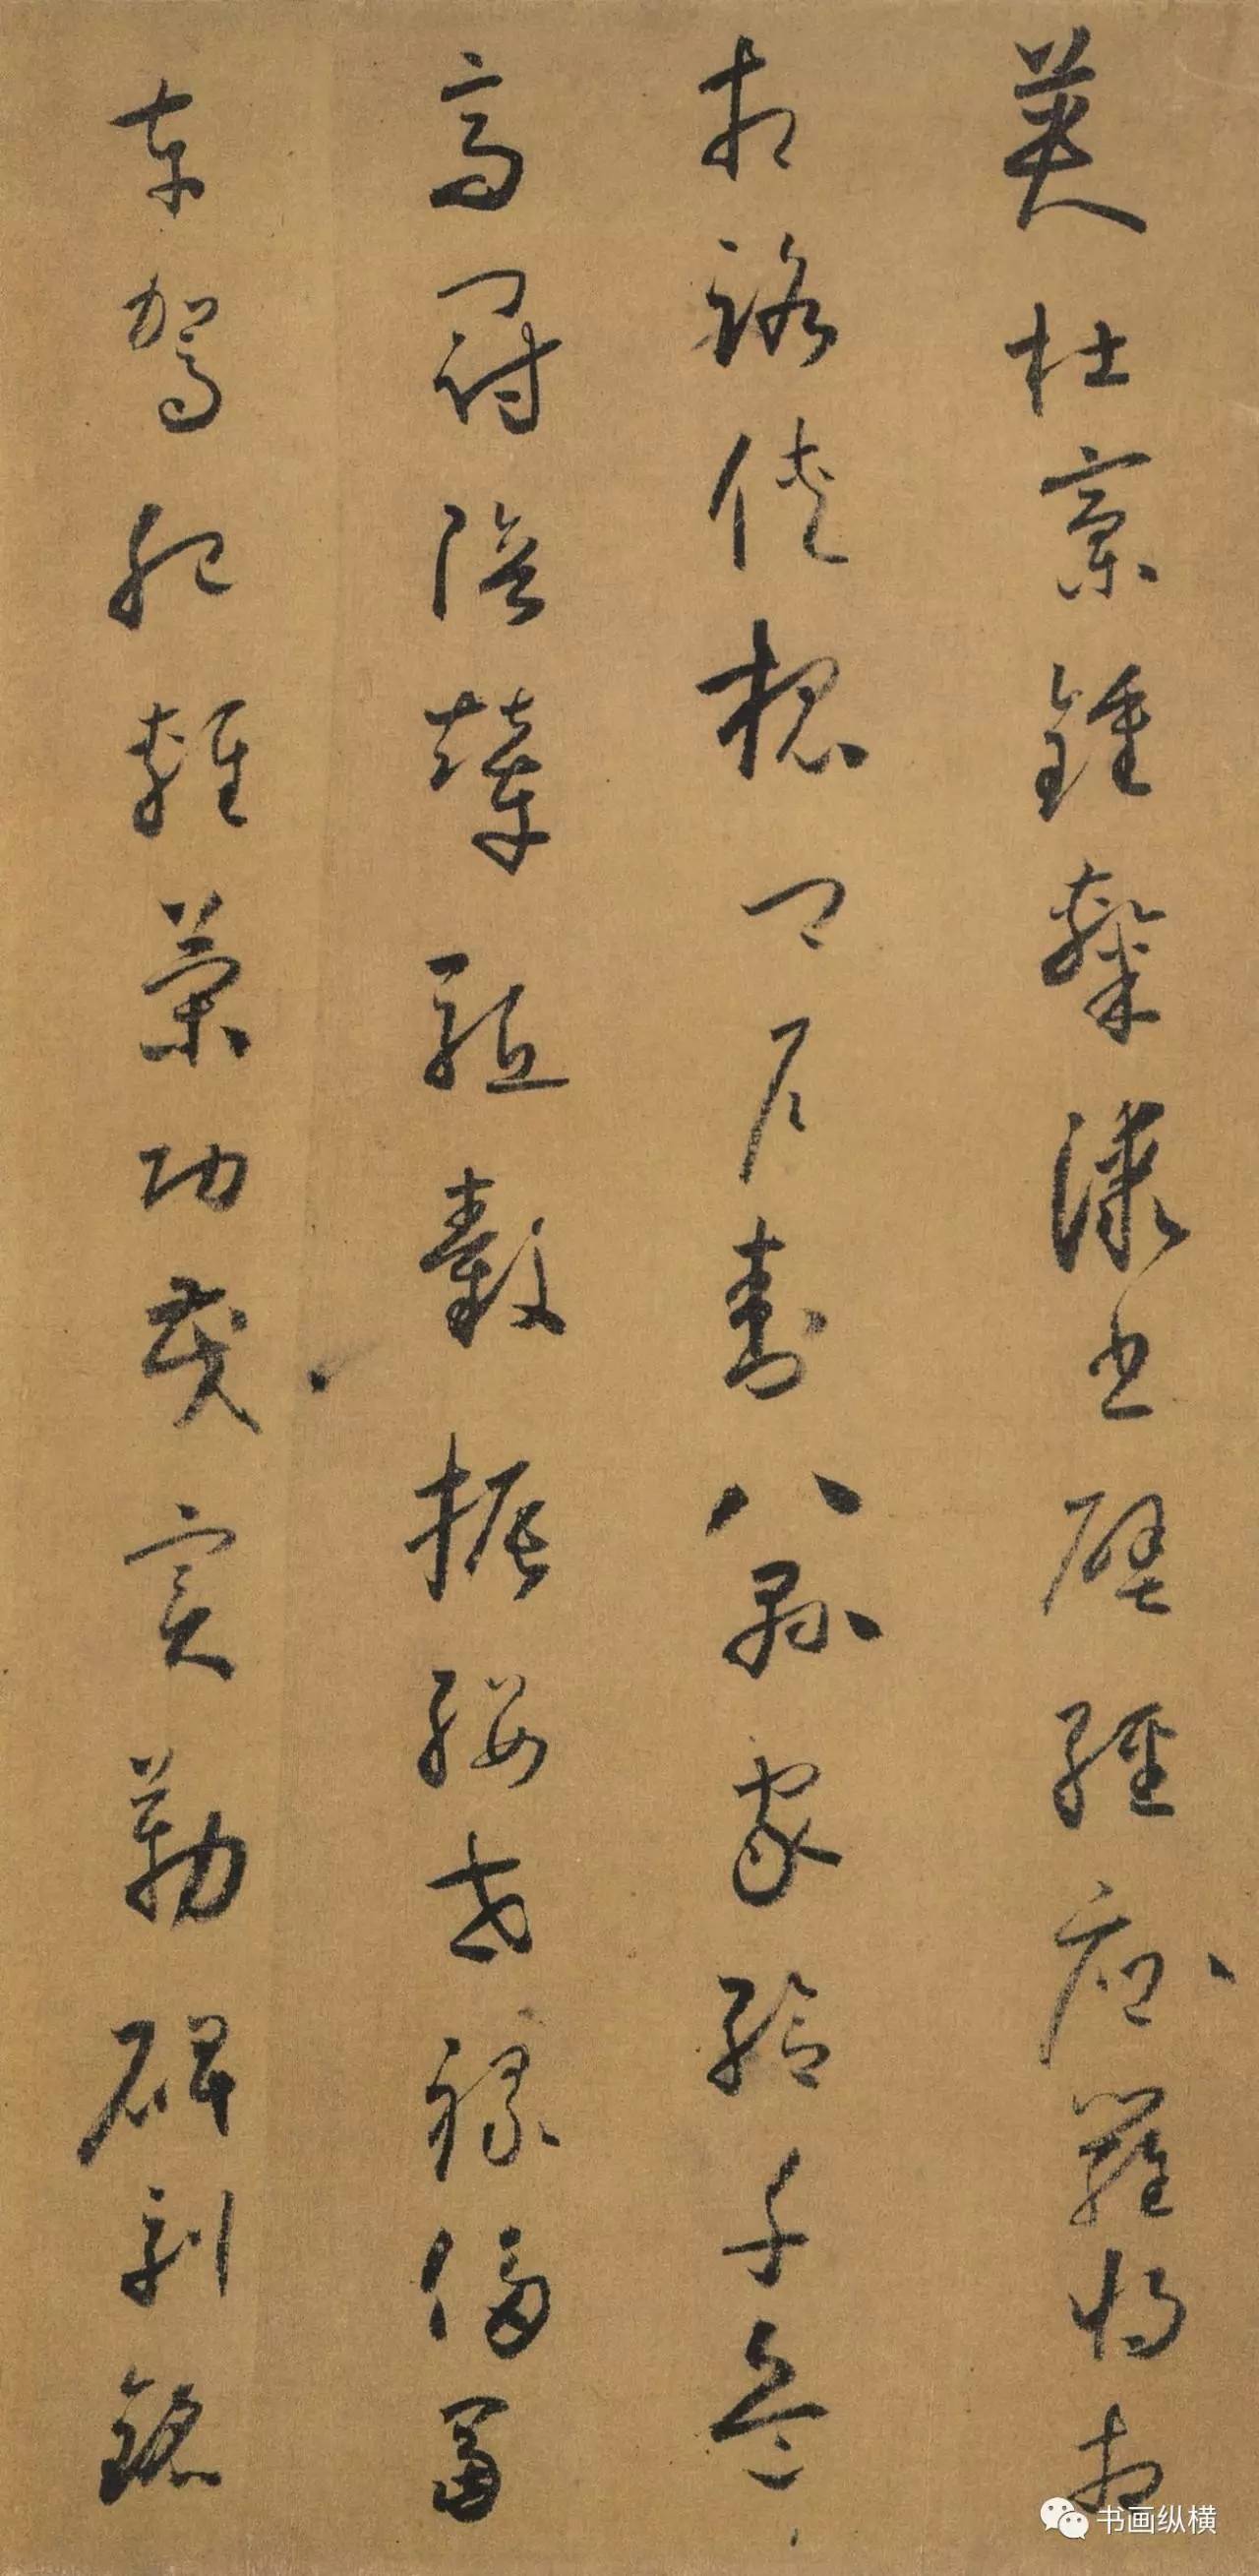 英杜稾鍾隸漆書壁經府羅將相
相路俠槐卿戶封八縣家給千兵
高冠陪輦驅轂振纓世祿侈富
車駕肥輕策功茂實勒碑刻銘
书画纵横